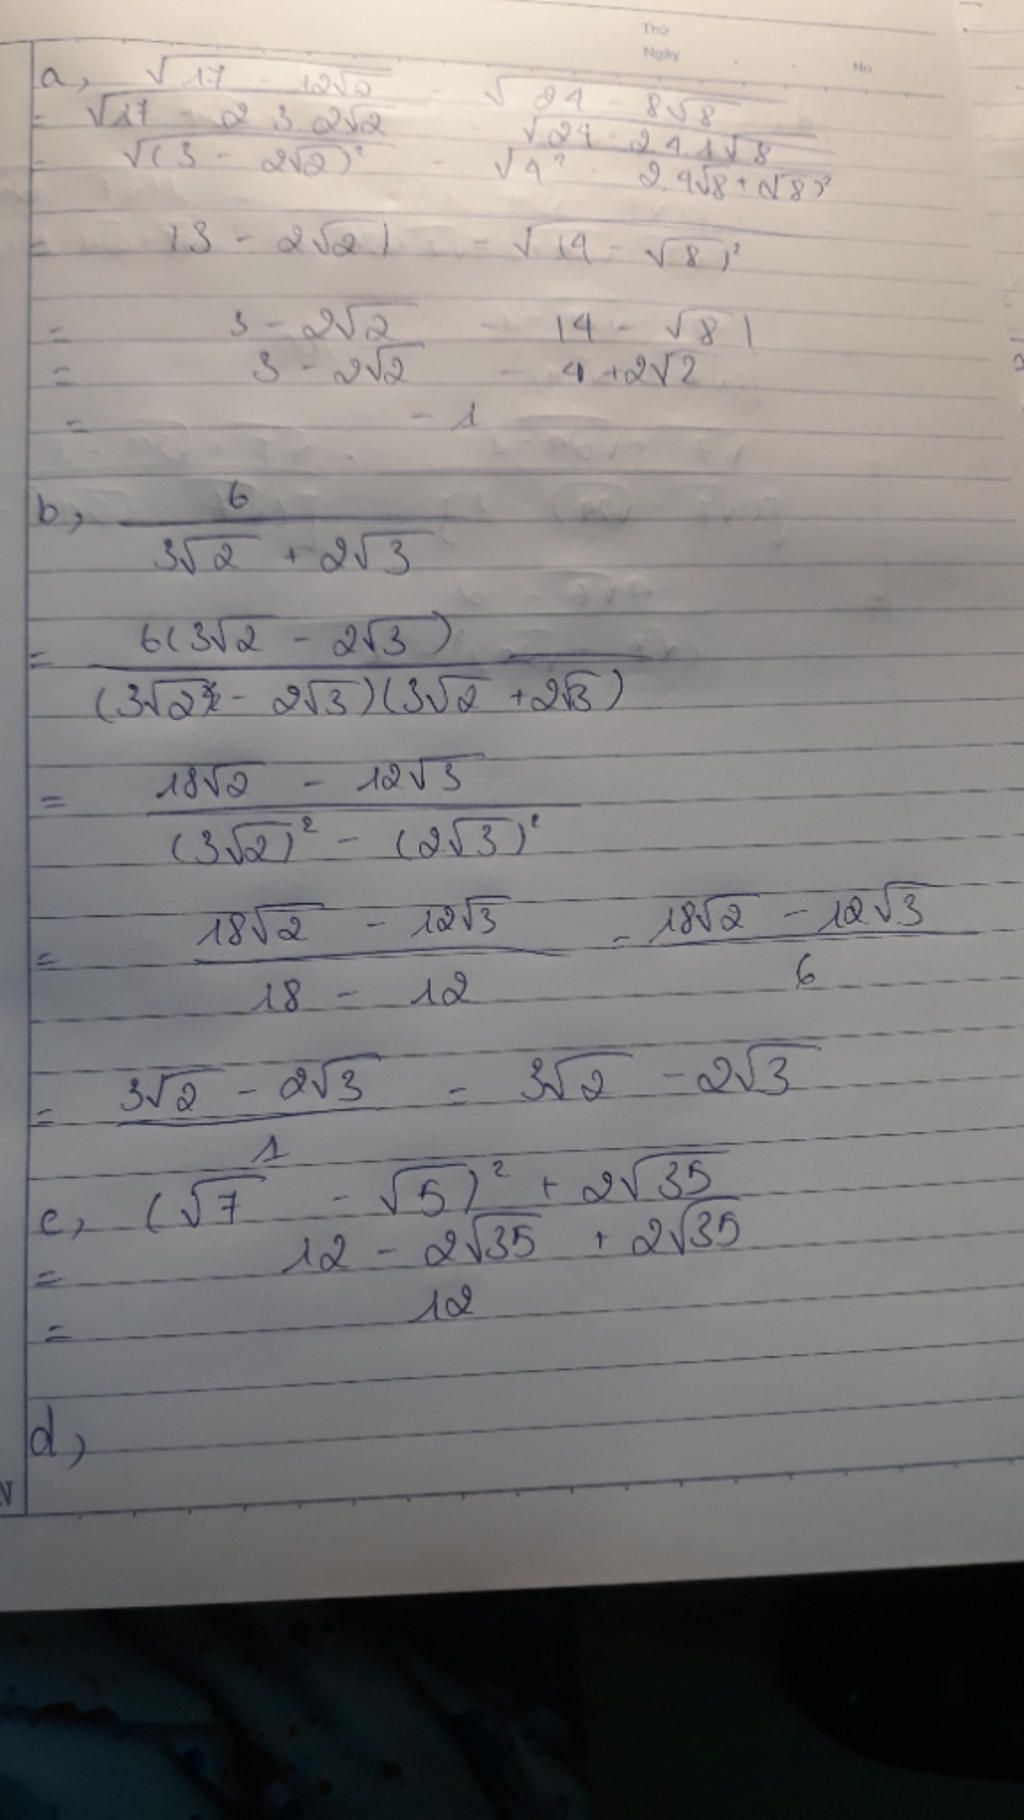 Thứ
Ngày
No
a, √17 - 12√2 - √24 - 8√8
= √17 - 2 3 2√2 - √24 - 2.4.1√8
= √(3 - 2√2)² - √4² - 2.4√8 + (√8)²
= |3 - 2√2| - √(4 - √8)²
= 3 - 2√2 - |4 - √8|
= 3 - 2√2 - 4 + 2√2
= - 1
b, 6
3√2 + 2√3
= 6(3√2 - 2√3)
(3√2 - 2√3)(3√2 + 2√3)
= 18√2 - 12√3
(3√2)² - (2√3)²
= 18√2 - 12√3 = 18√2 - 12√3
18 - 12 6
= 3√2 - 2√3 = 3√2 - 2√3
1
c, (√7 - √5)² + 2√35
= 12 - 2√35 + 2√35
= 12
d,